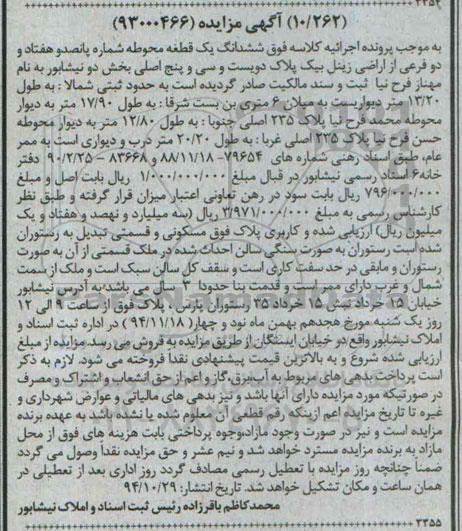 ۳۳۵۴
(۱۰/۲۶۲) آگهی مزایده (۹۳۰۰۰۴۶۶)
به موجب پرونده اجرائیه کلاسه فوق ششدانگ یک قطعه محوطه شماره پانصدو هفتاد و
دو فرعی از اراضی زینل بیک پلاک دویست و سی و پنج اصلی بخش دو نیشابور به نام
مهناز فرح نیا ثبت و سند مالکیت صادر گردیده است به حدود ثبتی شمالا : به طول
۱۳/۲۰ متر دیواریست به میلان ۶ متری بن بست شرقا : به طول ۱۷/۹۰ متر به دیوار
محوطه محمد فرح نیا پلاک ۲۳۵ اصلی جنوبا : به طول ۱۲/۸۰ متر به دیوار محوطه
حسن فرح نیا پلاک ۲۳۵ اصلی غربا : به طول ۲۰/۲۰ متر درب و دیواری است به ممر
عام، طبق اسناد رهنی شماره های ۷۹۶۵۴- ۸۸/۱۱/۱۸ و ۸۳۶۶۸ – ۹۰/۲/۲۵ دفتر
خانه۶ اسناد رسمی نیشابور در قبال مبلغ ۱/۰۰۰/۰۰۰/۰۰۰ ریال بابت اصل و مبلغ
۷۹۶/۰۰۰/۰۰۰ ریال بابت سود در رهن تعاونی اعتبار میزان قرار گرفته و طبق نظر
کارشناس رسمی به مبلغ ۳/۹۷۱/۰۰۰/۰۰۰ ریال (سه میلیارد و نهصد و هفتاد و یک
میلیون ریال) ارزیابی شده و کاربری پلاک فوق مسکونی و قسمتی تبدیل به رستوران
شده است رستوران به صورت بستگی سالن احداث شده در ملک قسمتی از آن به صورت
رستوران و مابقی در حد سفت کاری است و سقف کل سالن سبک است و ملک از سمت
شمال و غرب دارای ممر است و قدمت بنا حدودا ۳ سال می باشد به آدرس نیشابور
خیابان ۱۵ خرداد نبش ۱۵ خرداد ۳۵ رستوران پارس . پلاک فوق از ساعت ۹ الی ۱۲
روز یک شنبه مورخ هجدهم بهمن ماه نود و چهار( ۹۴/۱۱/۱۸ ) در اداره ثبت اسناد و
املاک نیشابور واقع در خیابان ایستگاه از طریق مزایده به فروش می رسد. مزایده از مبلغ
ارزیابی شده شروع و به بالاترین قیمت پیشنهادی نقدا فروخته می شود. لازم به ذکر
است پرداخت بدهی های مربوط به آب،برق،گاز و اعم از حق انشعاب و اشتراک و مصرف
در صورتیکه مورد مزایده دارای آنها باشد و نیز بدهی های مالیاتی و عوارض شهرداری و
غیره تا تاریخ مزایده اعم ازینکه رقم قطعی آن معلوم شده یا نشده باشد به عهده برنده
مزایده است و نیز در صورت وجود مازاد،وجوه پرداختی بابت هزینه های فوق از محل
مازاد به برنده مزایده مسترد خواهد شد و نیم عشر و حق مزایده نقدا وصول می گردد
ضمنا چنانچه روز مزایده با تعطیل رسمی مصادف گردد روز اداری بعد از تعطیلی در
همان ساعت و مکان تشکیل خواهد شد. تاریخ انتشار: ۹۴/۱۰/۲۹
محمدکاظم باقرزاده رئیس ثبت اسناد و املاک نیشابور
۳۳۵۵